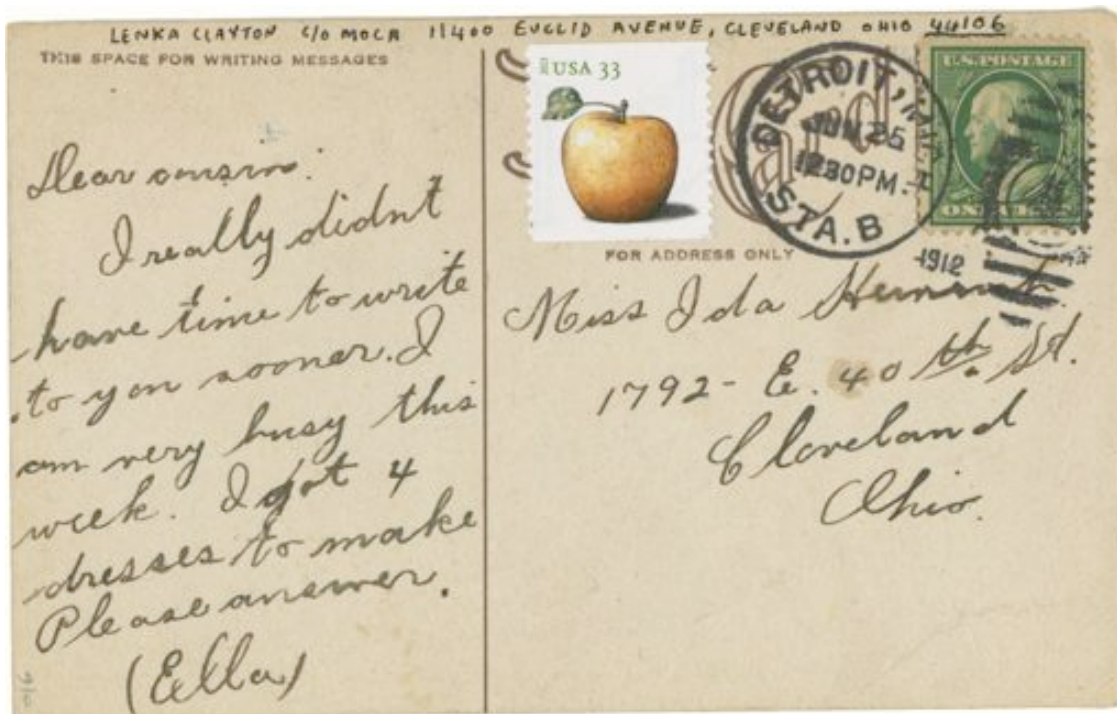 LENKA CLAYTON C/O MOCA 11400 EUCLID AVENUE, CLEVELAND OHIO 44106
THIS SPACE FOR WRITING MESSAGES
Dear cousin:
I really didnt
have time to write
to you sooner. I
am very busy this
week. I got 4
dresses to make
Please answer.
(Ella)
USA 33
DETROIT, MICH.
JUN 25
12 30 PM.
STA. B
1912
U.S. POSTAGE
ONE CENT
Card
FOR ADDRESS ONLY
Miss Ida
1792 - E. 40 th. St.
Cleveland
Ohio.